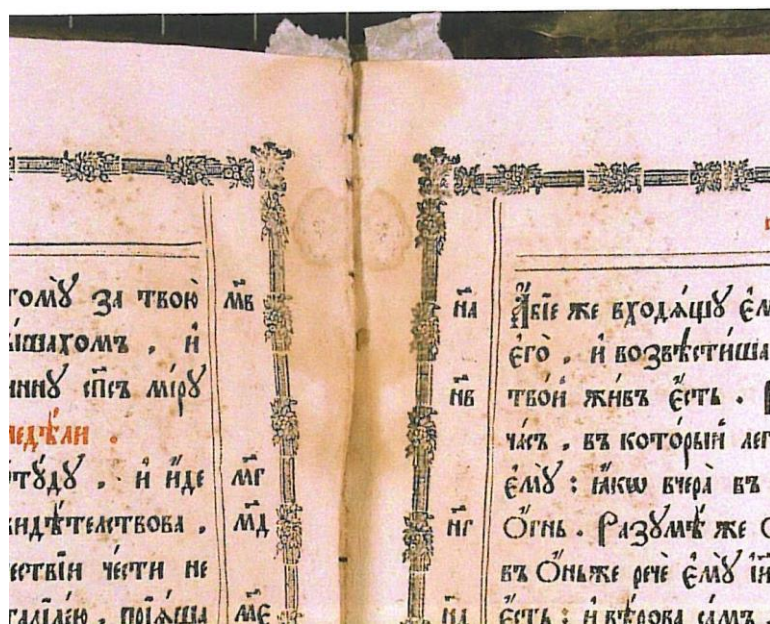 томꙋ̀ за твою̀ м҃в
шахомъ , и҆
иннꙋ сп҃съ мі́рꙋ
недѣ́ли .
тꙋ́дꙋ , и҆ и҆́де м҃г
видѣ́телствова , м҃д
ествїи че́сти не
галїле́ю , прїѧ́ша м҃е
н҃а А҆́бїе же входѧ́щꙋ є҆м
є҆гѡ̀ , и҆ возвѣсти́ша
н҃в тво́й жи́въ є҆́сть .
ча́съ , въ кото́рый лег
є҆мꙋ̀ : ꙗ҆́кѡ вчера̀ въ
н҃г Ѻ҆́гнь . Разꙋмѣ́ же
въ Ѻ҆́ньже речѐ є҆мꙋ̀
є҆́сть : и҆ вѣ́рова са́мъ .